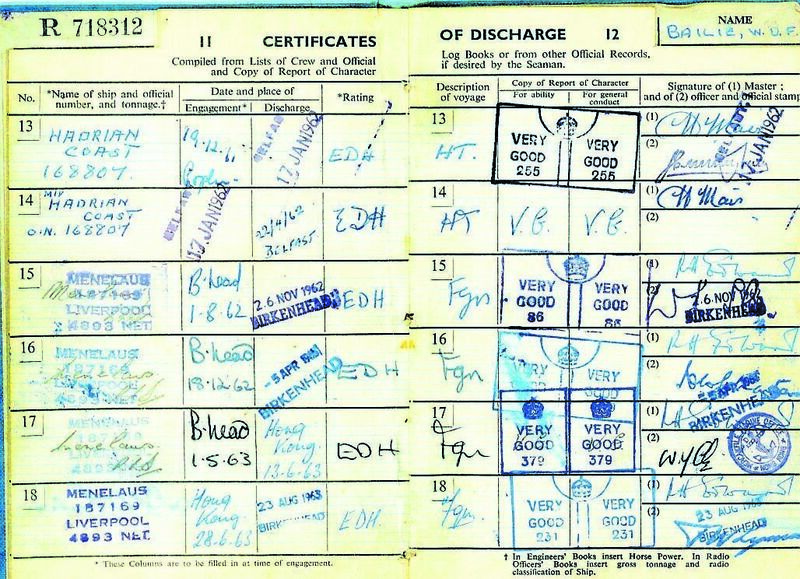 R 718312
11 CERTIFICATES
OF DISCHARGE 12
NAME
BAILIE, W.D.F.
Compiled from Lists of Crew and Official
and Copy of Report of Character
Log Books or from other Official Records,
if desired by the Seaman.
No.
*Name of ship and official
number, and tonnage.†
Date and place of
Engagement*
Discharge
*Rating
Description
of voyage
Copy of Report of Character
For ability
For general
conduct
Signature of (1) Master ;
and of (2) officer and official stamp
13
HADRIAN
COAST
168807.
19.12.61
BELFAST
17 JAN 1962
EDH
13
HT.
VERY
GOOD
255
VERY
GOOD
255
(1)
(2)
BELFAST
17 JAN 1962
14
M/V
HADRIAN
COAST
O.N. 168807
BELFAST
17 JAN 1962
22/4/62
BELFAST
EDH
14
HT
V.G.
V.G.
(1)
(2)
15
MENELAUS
187169
LIVERPOOL
4893 NET.
B.head
1-8.62
26 NOV 1962
BIRKENHEAD
EDH
15
Fgn
VERY
GOOD
86
VERY
GOOD
86
(1)
(2)
26 NOV 1962
BIRKENHEAD
16
MENELAUS
187169
LIVERPOOL
4893 NET.
B.head
18.12.62
-5 APR 1963
BIRKENHEAD
EDH
16
Fgn
VERY
GOOD
VERY
GOOD
(1)
(2)
APR 1963
BIRKENHEAD
17
MENELAUS
Menelaus
B.head
1.5.63
Hong
Kong.
13.6.63
EDH
17
Fgn
VERY
GOOD
379
VERY
GOOD
379
(1)
(2)
18
MENELAUS
187169
LIVERPOOL
4893 NET.
Hong
Kong
28.6.63
23 AUG 1963
BIRKENHEAD
EDH.
18
Fgn.
VERY
GOOD
231
VERY
GOOD
231
(1)
(2)
23 AUG 1963
BIRKENHEAD
* These Columns are to be filled in at time of engagement.
† In Engineers' Books insert Horse Power. In Radio
Officers' Books insert gross tonnage and radio
classification of Ship.